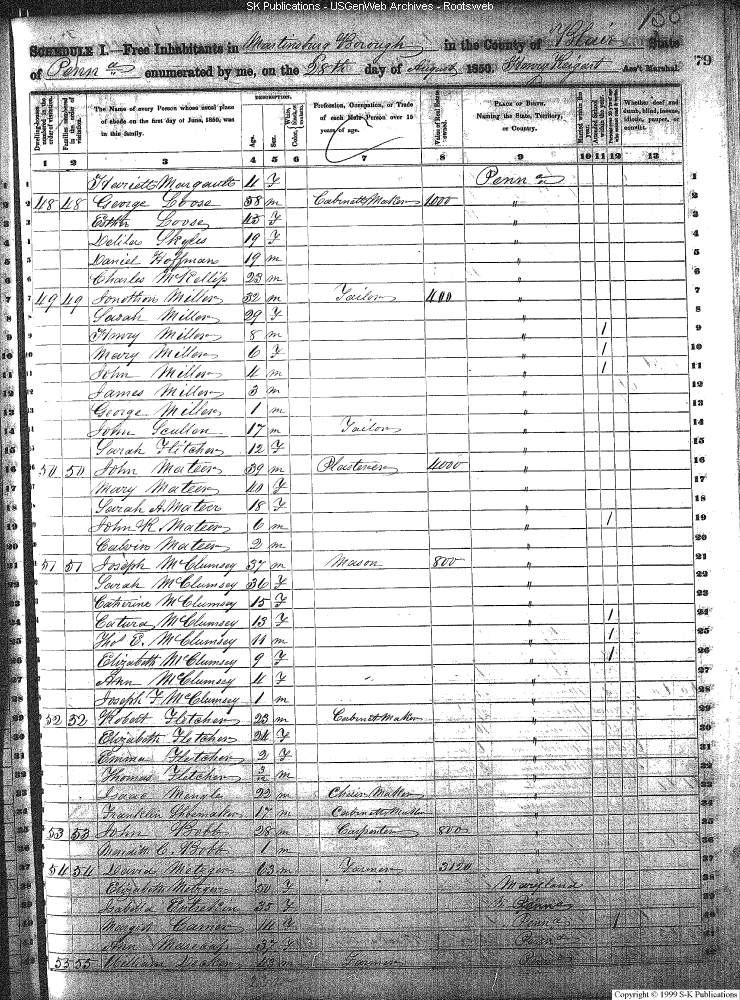 SK Publications - USGenWeb Archives - Rootsweb
SCHEDULE I.—Free Inhabitants in Martinsburg Borough in the County of Blair State
of Penna enumerated by me, on the 28th day of August 1850. Ass't Marshal. 79
Dwelling-houses numbered in the order of visitation. Families numbered in the order of visitation. The Name of every Person whose usual place of abode on the first day of June, 1850, was in this family. DESCRIPTION. Age. Sex. Color, White, black, or mulatto. Profession, Occupation, or Trade of each Male Person over 15 years of age. Value of Real Estate owned. PLACE OF BIRTH. Naming the State, Territory, or Country. Married within the year. Attended School within the year. Whether deaf and dumb, blind, insane, idiotic, pauper, or convict.
1 2 3 4 5 6 7 8 9 10 11 12 13
1 4 F Penna 1
2 48 48 George Loose 38 m Cabinet Maker 1000 " 2
3 Esther Loose F " 3
4 Delila Skyles 19 F " 4
5 Daniel Hoffman 19 m " 5
6 Charles McKellip 23 m " 6
7 49 49 Jonathan Miller 32 m Tailor 400 " 7
8 Sarah Miller 29 F " 8
9 Henry Miller 8 m " 1 9
10 Mary Miller 6 F " 1 10
11 John Miller 4 m " 1 11
12 James Miller 3 m " 12
13 George Miller 1 m " 13
14 John Scullen 17 m Tailor " 14
15 Sarah Fletcher 12 F " 15
16 50 50 John Mateer 39 m Plasterer 4000 " 16
17 Mary Mateer 40 F " 17
18 Sarah A. Mateer 18 F " 18
19 John K. Mateer 6 m " 1 19
20 Calvin Mateer 2 m " 20
21 51 51 Joseph McClumsey 37 m Mason 800 " 21
22 Sarah McClumsey 36 F " 22
23 Catherine McClumsey 15 F " 23
24 McClumsey 13 F " 1 24
25 Thos McClumsey 11 m " 1 25
26 Elizabeth McClumsey 9 F " 1 26
27 Ann McClumsey 4 F " 27
28 Joseph F. McClumsey 1 m " 28
29 52 52 Robert Fletcher 23 m Cabinet Maker " 29
30 Elizabeth Fletcher 24 F " 30
31 Emma Fletcher 2 F " 31
32 Thomas Fletcher m " 32
33 Isaac Mengle 22 m Chair Maker " 33
34 Franklin Shoemaker 17 m Cabinet Maker " 34
35 53 53 John Bobb 28 m Carpenter 800 " 35
36 C. Bobb 1 m " 36
37 54 54 David Metzger 63 m Farmer 3120 " 37
38 Elizabeth Metzger 50 F Maryland 38
39 Isabella 35 F Penna 39
40 Carner F Penna 1 40
41 Ann 37 F Penna 41
42 55 55 William m Farmer Penna 42
Copyright © 1999 S-K Publications